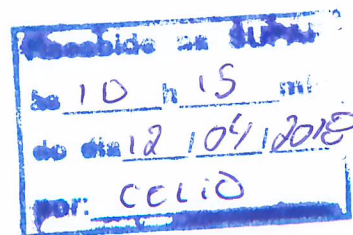 Recebido na SUPRI
às 10 h 15 m
do dia 12 / 04 / 2018
por: CELIO